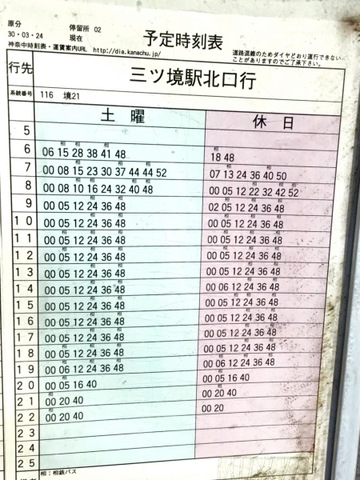 原分 停留所 02
30・03・24 現在
予定時刻表
神奈中時刻表・運賃案内URL http://dia.kanachu.jp/
道路混雑のためダイヤどおり運行できない
ことがありますのでご了承下さい。
行先 三ツ境駅北口行
系統番号 116 境21
土曜 休日
5
6 06 15 28 38 41 48 18 48
7 00 08 15 23 30 37 44 44 52 07 13 24 36 40 50
8 00 08 10 16 24 32 40 48 00 05 12 22 32 42 52
9 00 05 12 24 36 48 02 05 12 24 36 48
10 00 05 12 24 36 48 00 05 12 24 36 48
11 00 05 12 24 36 48 00 05 12 24 36 48
12 00 05 12 24 36 48 00 05 12 24 36 48
13 00 05 12 24 36 48 00 05 12 24 36 48
14 00 05 12 24 36 48 00 06 12 24 36 48
15 00 05 12 24 36 48 00 05 12 24 36 48
16 00 05 12 24 36 48 00 05 12 24 36 48
17 00 05 12 24 36 48 00 05 12 24 36 48
18 00 05 12 24 36 48 00 05 12 24 36 48
19 00 06 12 24 36 48 00 06 12 24 36 48
20 00 05 16 40 00 05 16 40
21 00 20 40 00 20 40
22 00 20 40 00 20
23
24
25
相：相鉄バス